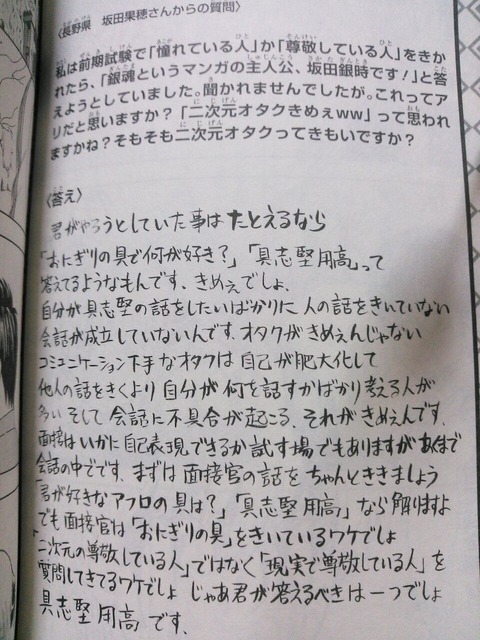 〈長野県　坂田果穂さんからの質問〉
私は前期試験で「憧れている人」か「尊敬している人」をきか
れたら、「銀魂というマンガの主人公、坂田銀時です！」と答
えようとしていました。聞かれませんでしたが。これってア
リだと思いますか？「二次元オタクきめぇww」って思われ
ますかね？そもそも二次元オタクってきもいですか？
〈答え〉
君がやろうとしていた事は たとえるなら
「おにぎりの具で何が好き？」「具志堅用高」って
答えてるようなもんです、きめぇでしょ、
自分が具志堅の話をしたいばかりに 人の話をきいていない
会話が成立していないんです、オタクがきめぇんじゃない
コミュニケーション下手なオタクは 自己が肥大化して
他人の話をきくより 自分が 何を話すかばかり考える人が
多い そして 会話に不具合が起こる、それが きめぇんです、
面接はいかに自己表現できるか試す場でもありますが あくまで
会話の中でです、まずは 面接官の話を ちゃんとききましょう
君が好きな アフロの具は？」「具志堅用高」なら解りますよ
でも面接官は「おにぎりの具」をきいているワケでしょ
「二次元の尊敬している人」ではなく「現実で尊敬している人」を
質問してきてるワケでしょ じゃあ君が答えるべきは 一つでしょ
具志堅用高 です、